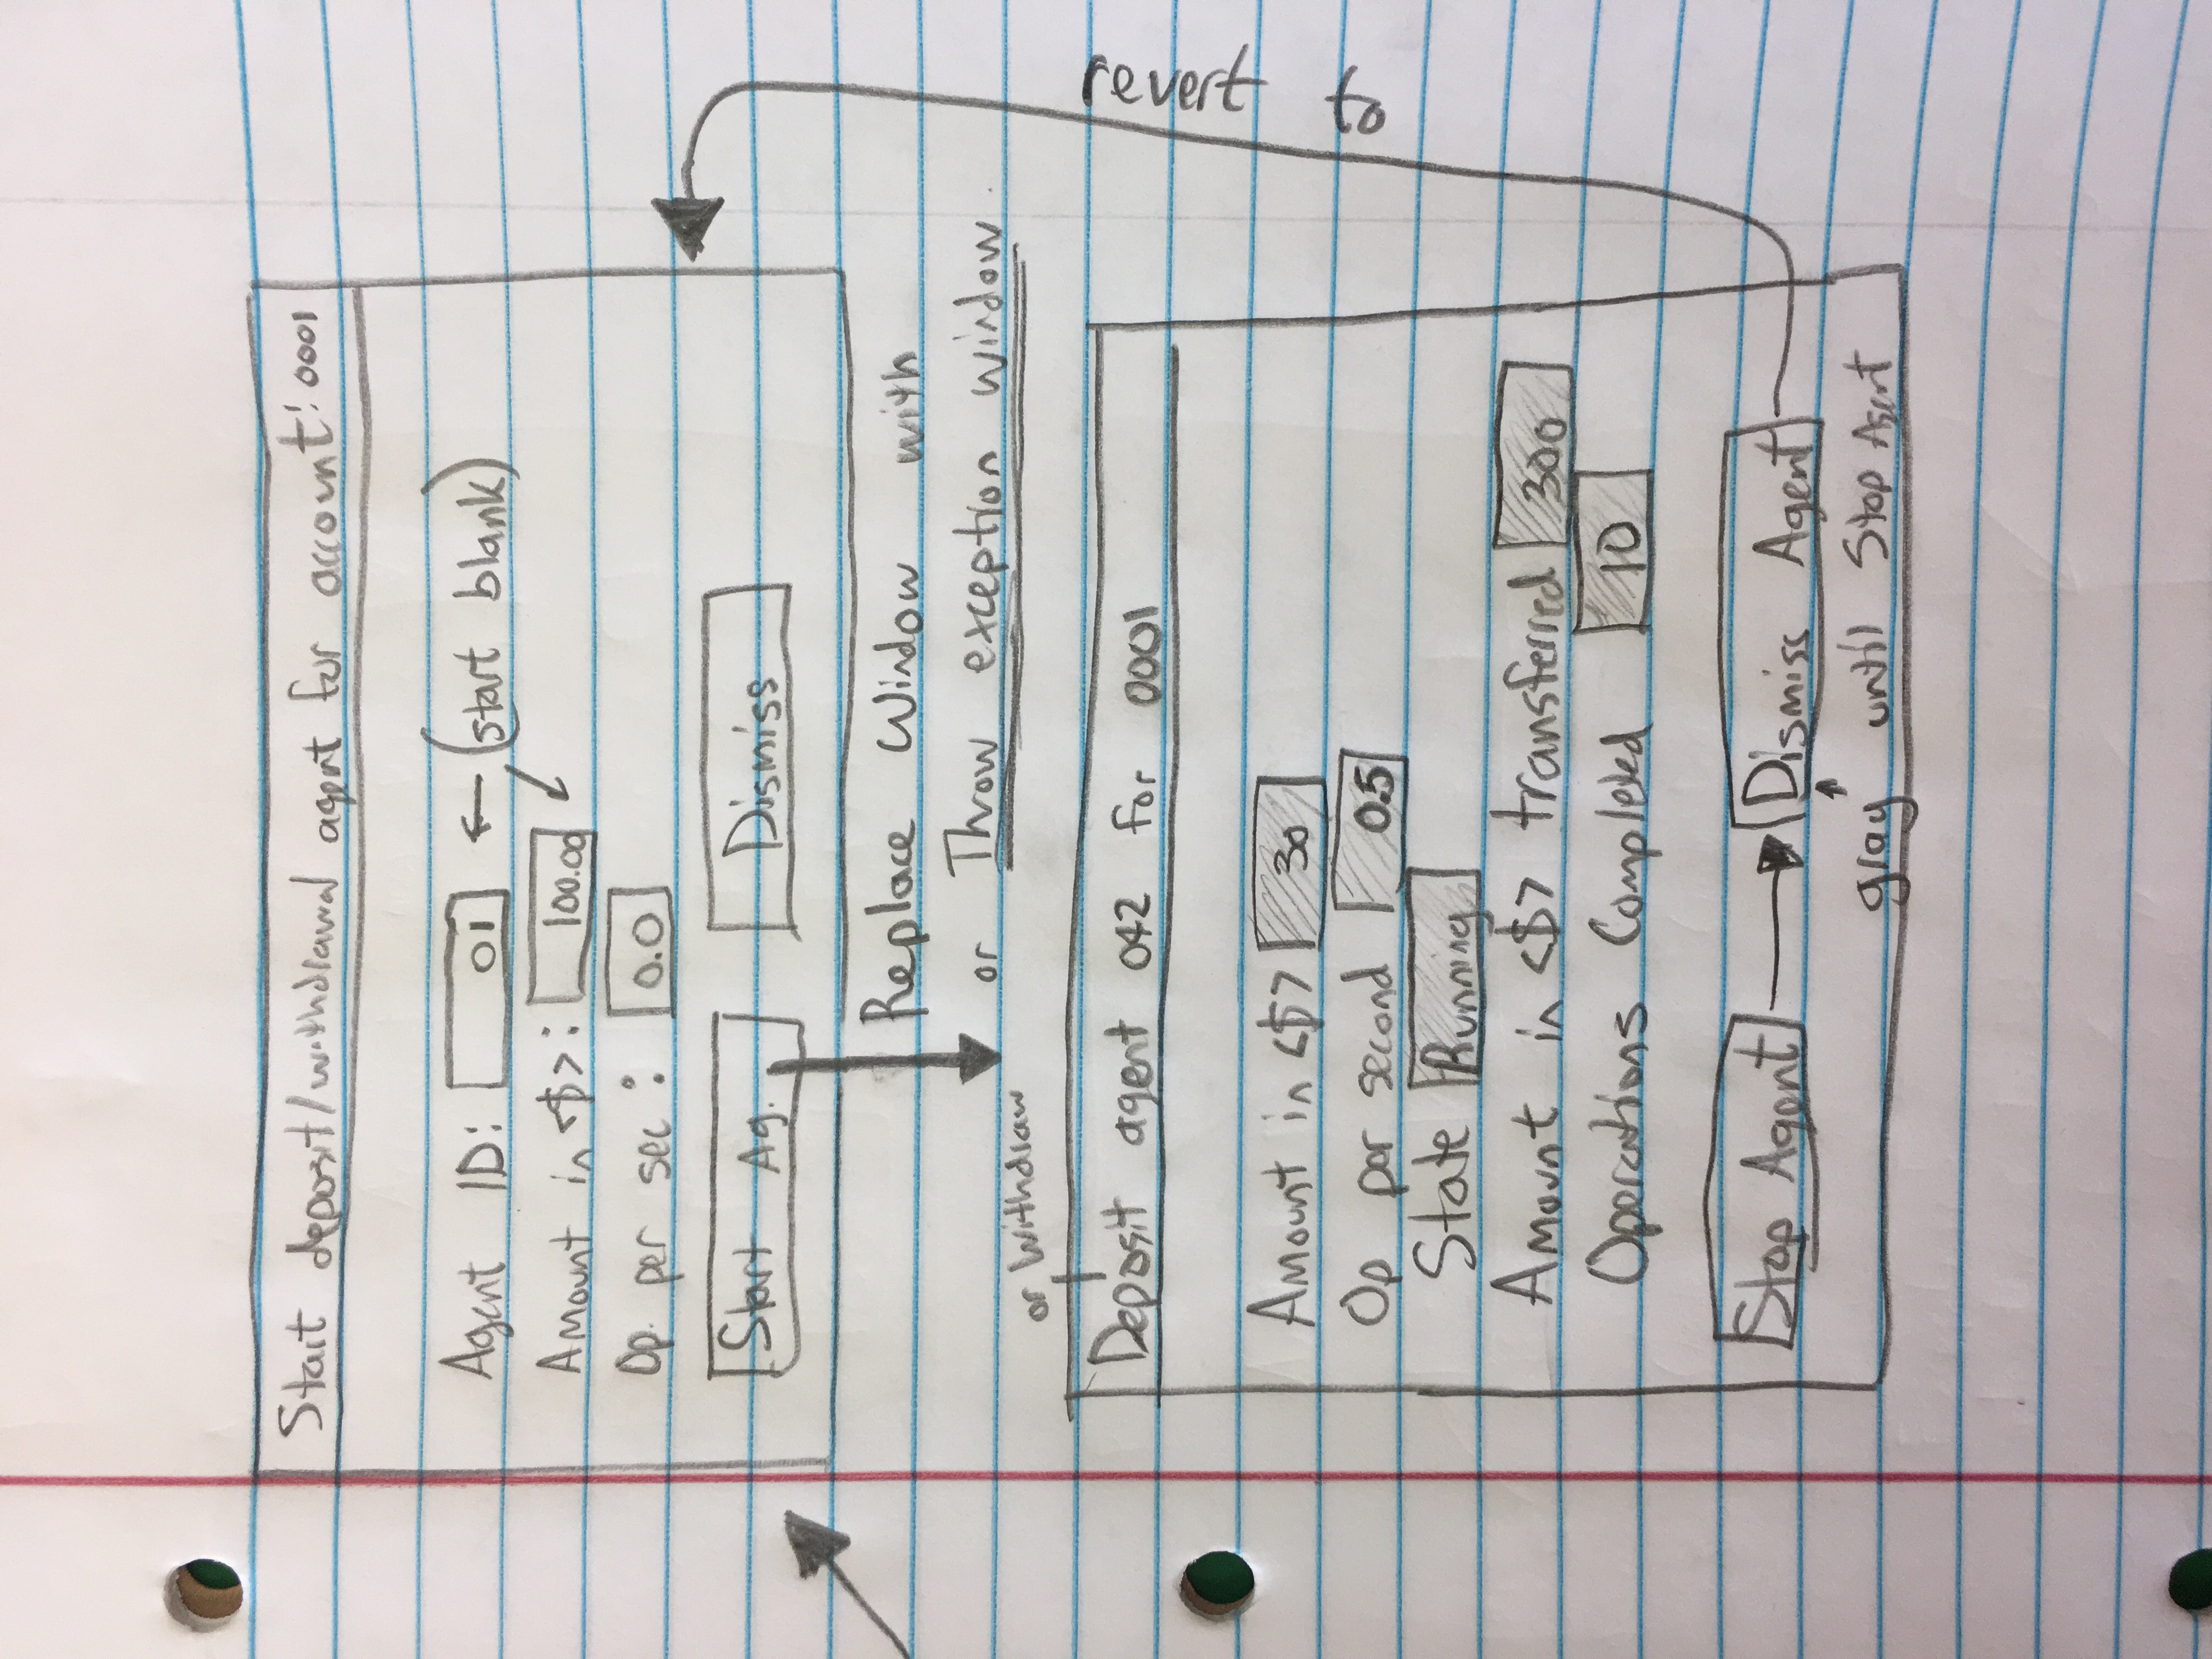 Start deposit/withdrawal agent for account: 0001
Agent ID: 01 ← (start blank)
Amount in <$>: 100.00
Op. per sec: 0.0
Start Ag. Dismiss
Replace Window with
or Throw exception window.
or Withdraw
Deposit agent 042 for 0001
Amount in <$> 30
Op per second 0.5
State Running
Amount in <$> transferred 300
Operations Completed 10
Stop Agent Dismiss Agent
gray until Stop Agent
revert to